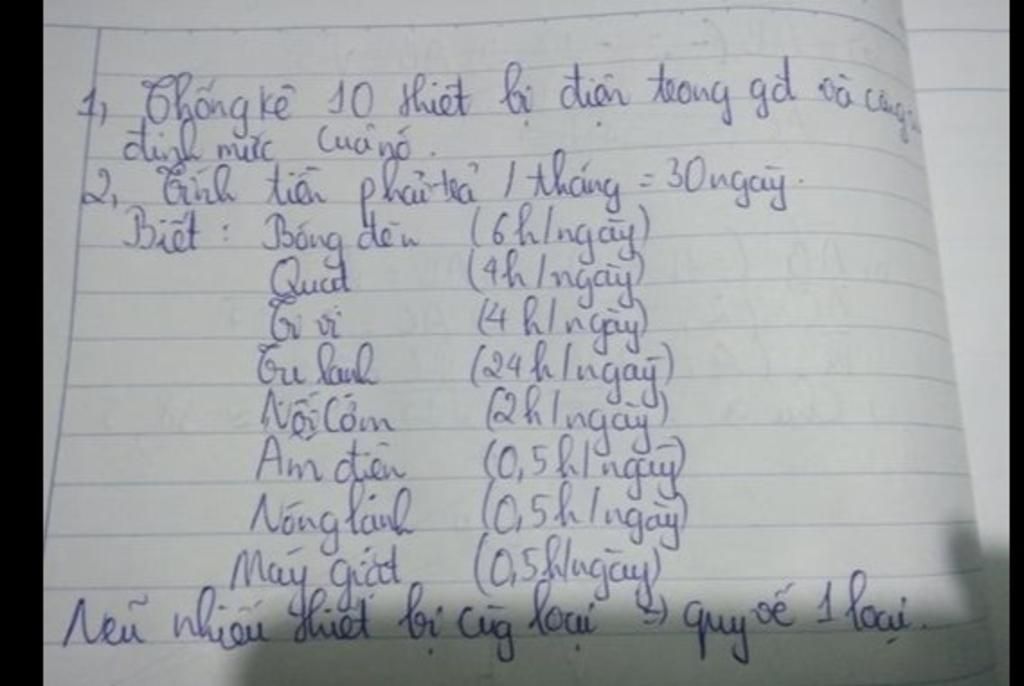 1, Thống kê 10 thiết bị điện trong gđ và công
định mức của nó.
2, Tính tiền phải trả 1 tháng = 30 ngày.
Biết : Bóng đèn (6h/ngày)
Quạt (4h/ngày)
Ti vi (4h/ngày)
Tủ lạnh (24h/ngày)
Nồi cơm (2h/ngày)
Ấm điện (0,5h/ngày)
Nóng lạnh (0,5h/ngày)
Máy giặt (0,5h/ngày)
Nếu nhiều thiết bị cùng loại => quy về 1 loại.